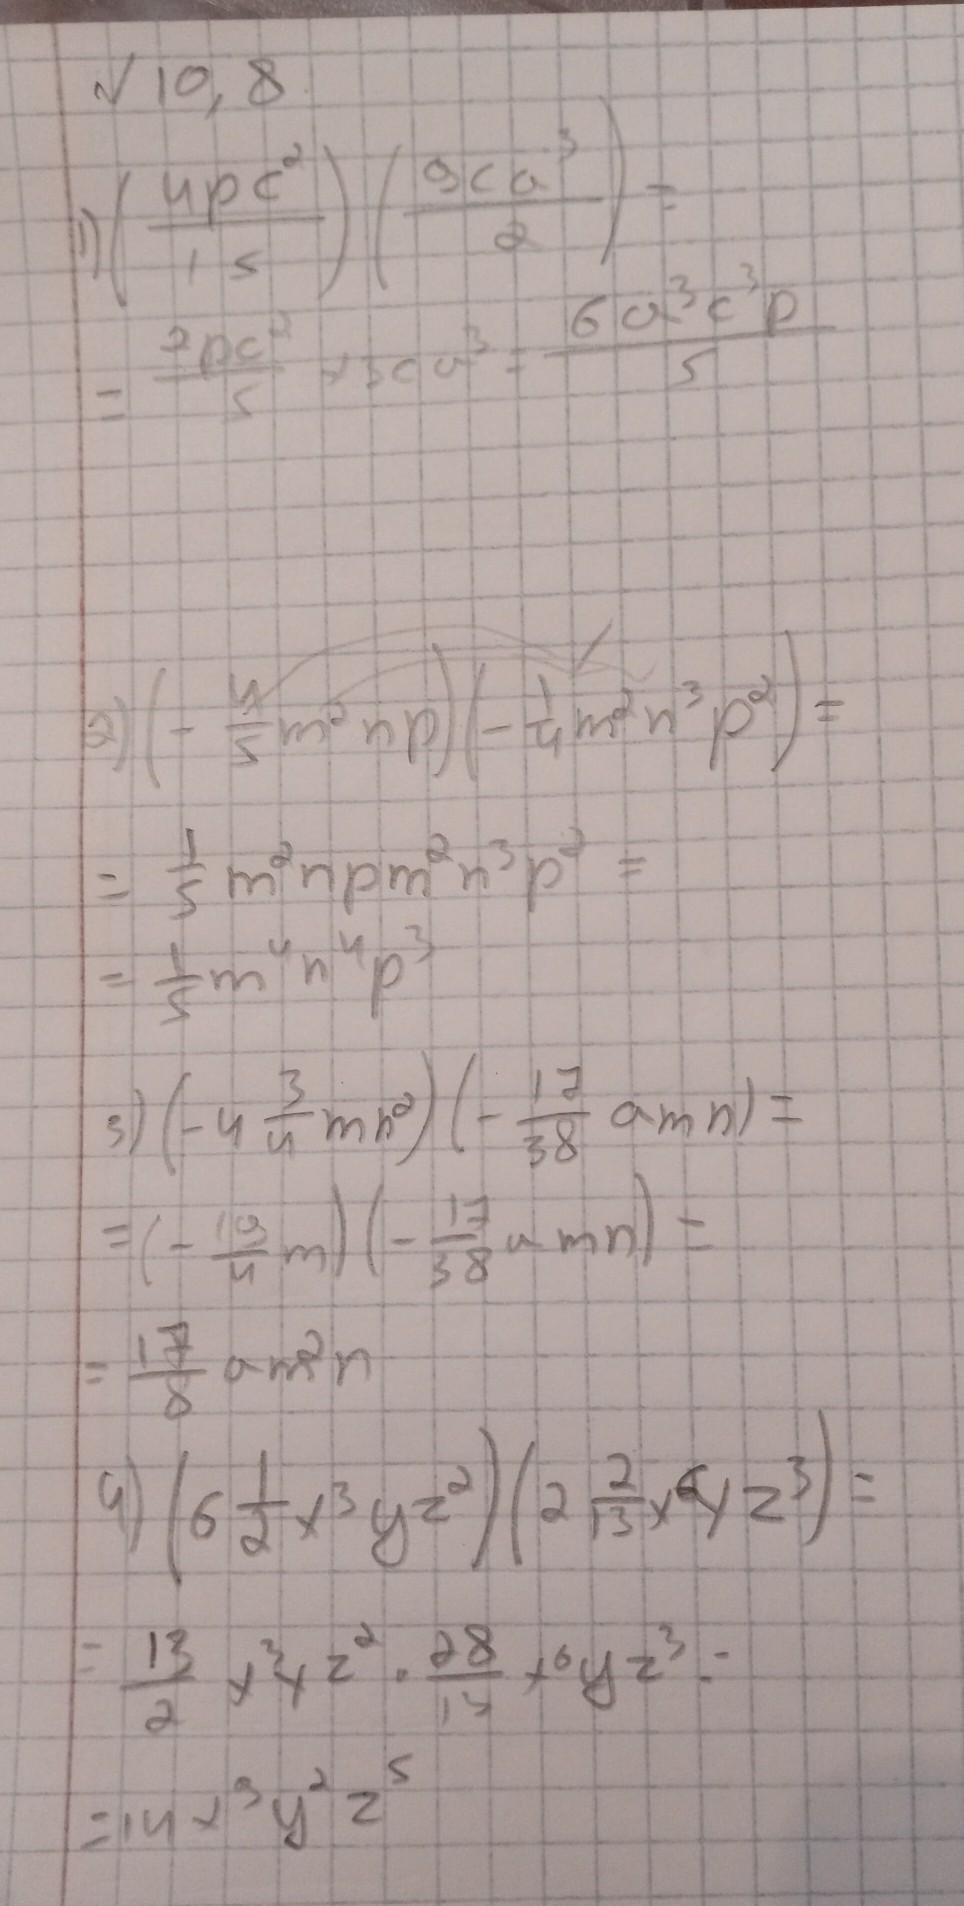 √10,8
1) (4pc²/15)(9ca³/2) =
= 2pc²/5 × 3ca³ = 6a³c³p/5
2) (- 4/5 m² np)(- 1/4 m² n³ p²) =
= 1/5 m² n p m² n³ p² =
= 1/5 m⁴ n⁴ p³
3) (-4 3/4 mn²)(- 17/38 amn) =
= (- 19/4 m)(- 17/38 amn) =
= 17/8 am²n
4) (6 1/2 x³yz²)(2 2/13 x⁶yz³) =
= 13/2 x³yz² · 28/13 x⁶yz³ =
= 14x⁹y²z⁵